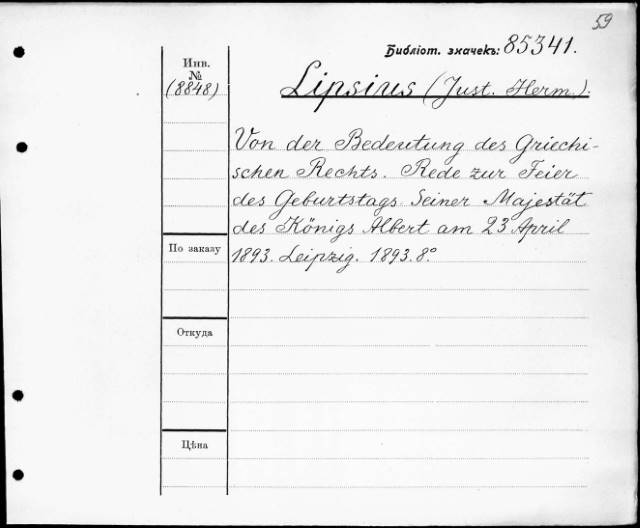 59
Библіот. значекъ: 85341.
Инв.
№
(8848)
Lipsius (Just. Herm.).
Von der Bedeutung des Griechi-
schen Rechts. Rede zur Feier
des Geburtstags Seiner Majestät
des Königs Albert am 23 April
1893. Leipzig. 1893. 8°.
По заказу
Откуда
Цѣна